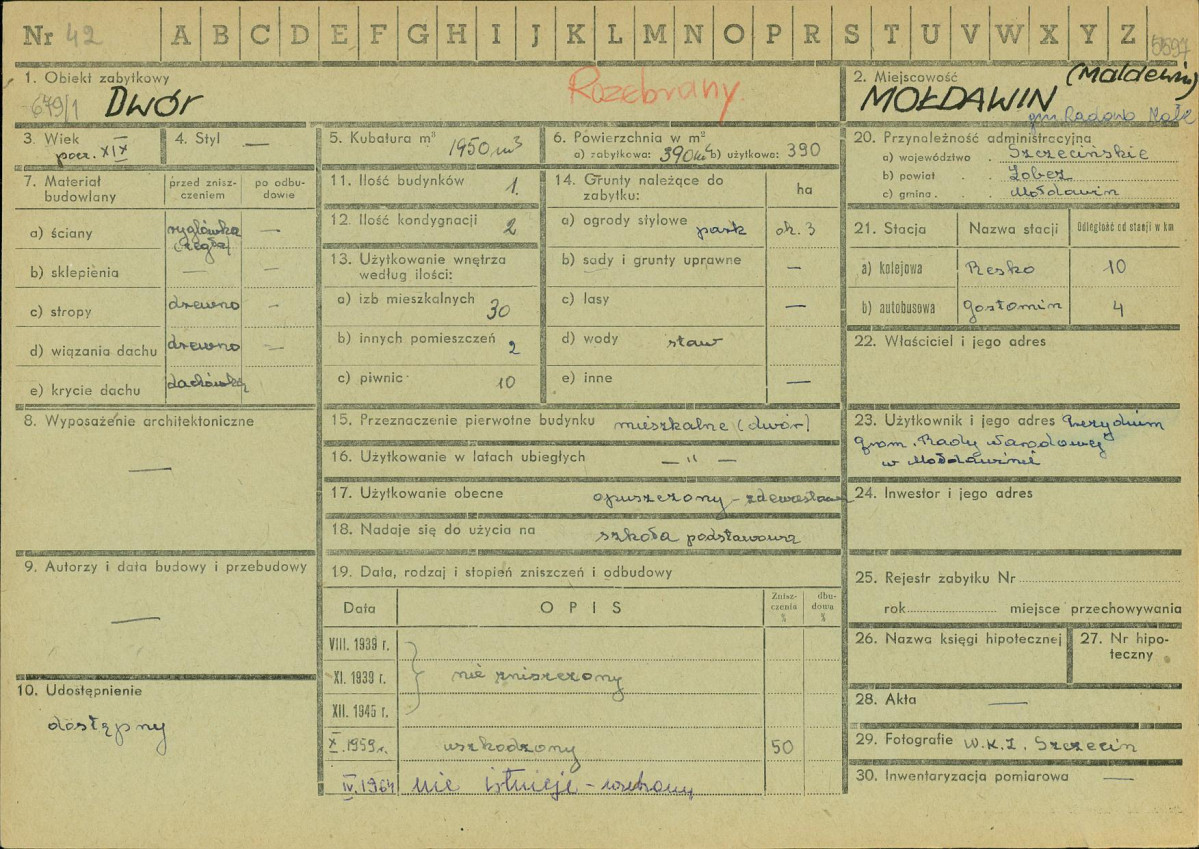 Nr 42 A B C D E F G H I J K L M N O P R S T U V W X Y Z 5597
1. Obiekt zabytkowy
679/1 Dwór
Rozebrany
2. Miejscowość (Maldewin)
MOŁDAWIN
gm. Radowo Małe
3. Wiek
pocz. XIX
4. Styl —
5. Kubatura m³ 1950 m³
6. Powierzchnia w m²
a) zabytkowa: 390 m² b) użytkowa: 390
7. Materiał budowlany
przed znisz-
czeniem
po odbu-
dowie
a) ściany ryglówka —
cegła
b) sklepienia — —
c) stropy drewno —
d) wiązania dachu drewno —
e) krycie dachu dachówka
8. Wyposażenie architektoniczne
—
9. Autorzy i data budowy i przebudowy
—
10. Udostępnienie
dostępny
11. Ilość budynków 1.
12. Ilość kondygnacji 2
13. Użytkowanie wnętrza
według ilości:
a) izb mieszkalnych 30
b) innych pomieszczeń 2
c) piwnic 10
14. Grunty należące do
zabytku: ha
a) ogrody stylowe park ok. 3
b) sady i grunty uprawne —
c) lasy —
d) wody staw
e) inne —
15. Przeznaczenie pierwotne budynku mieszkalne (dwór)
16. Użytkowanie w latach ubiegłych — " —
17. Użytkowanie obecne opuszczony – zdewastowany
18. Nadaje się do użycia na szkoła podstawowa
19. Data, rodzaj i stopień zniszczeń i odbudowy
Data OPIS
Znisz-
czenia
%
dbu-
dowa
%
VIII. 1939 r.
XI. 1939 r. nie zniszczony
XII. 1945 r.
X. 1959 r. uszkodzony 50
IV. 1964 nie istnieje –
20. Przynależność administracyjna
a) województwo . Szczecińskie
b) powiat . . Łobez
c) gmina . . Mołdawin
21. Stacja Nazwa stacji Odległość od stacji w km
a) kolejowa Resko 10
b) autobusowa Gostomin 4
22. Właściciel i jego adres
23. Użytkownik i jego adres Prezydium
grom. Rady Narodowej
w Mołdawinie
24. Inwestor i jego adres
25. Rejestr zabytku Nr
rok miejsce przechowywania
26. Nazwa księgi hipotecznej
27. Nr hipo-
teczny
28. Akta —
29. Fotografie W.K.Z. Szczecin
30. Inwentaryzacja pomiarowa —